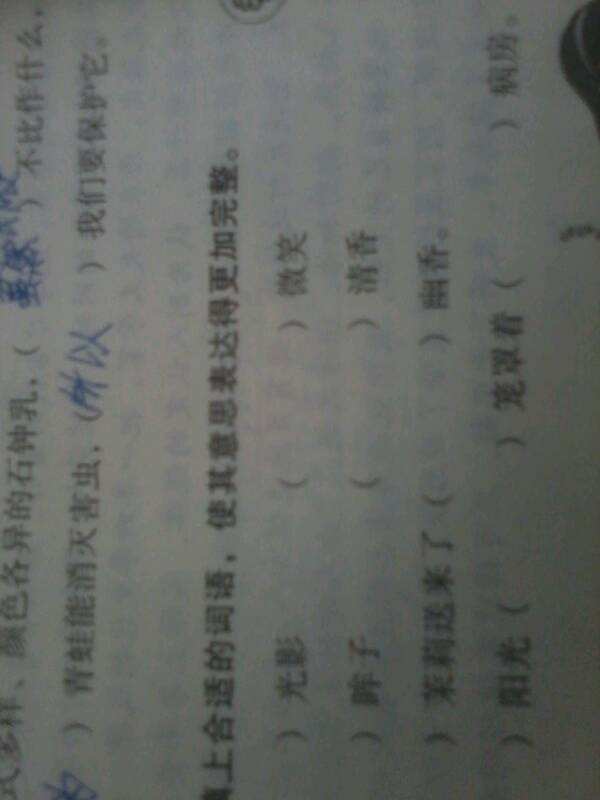 式多样、颜色各异的石钟乳，（虽然）不比作什么，
）青蛙能消灭害虫，（所以）我们要保护它。
填上合适的词语，使其意思表达得更加完整。
）光影 （ ）微笑
）眸子 （ ）清香
）茉莉送来了（ ）幽香。
）阳光（ ）笼罩着（ ）病房。